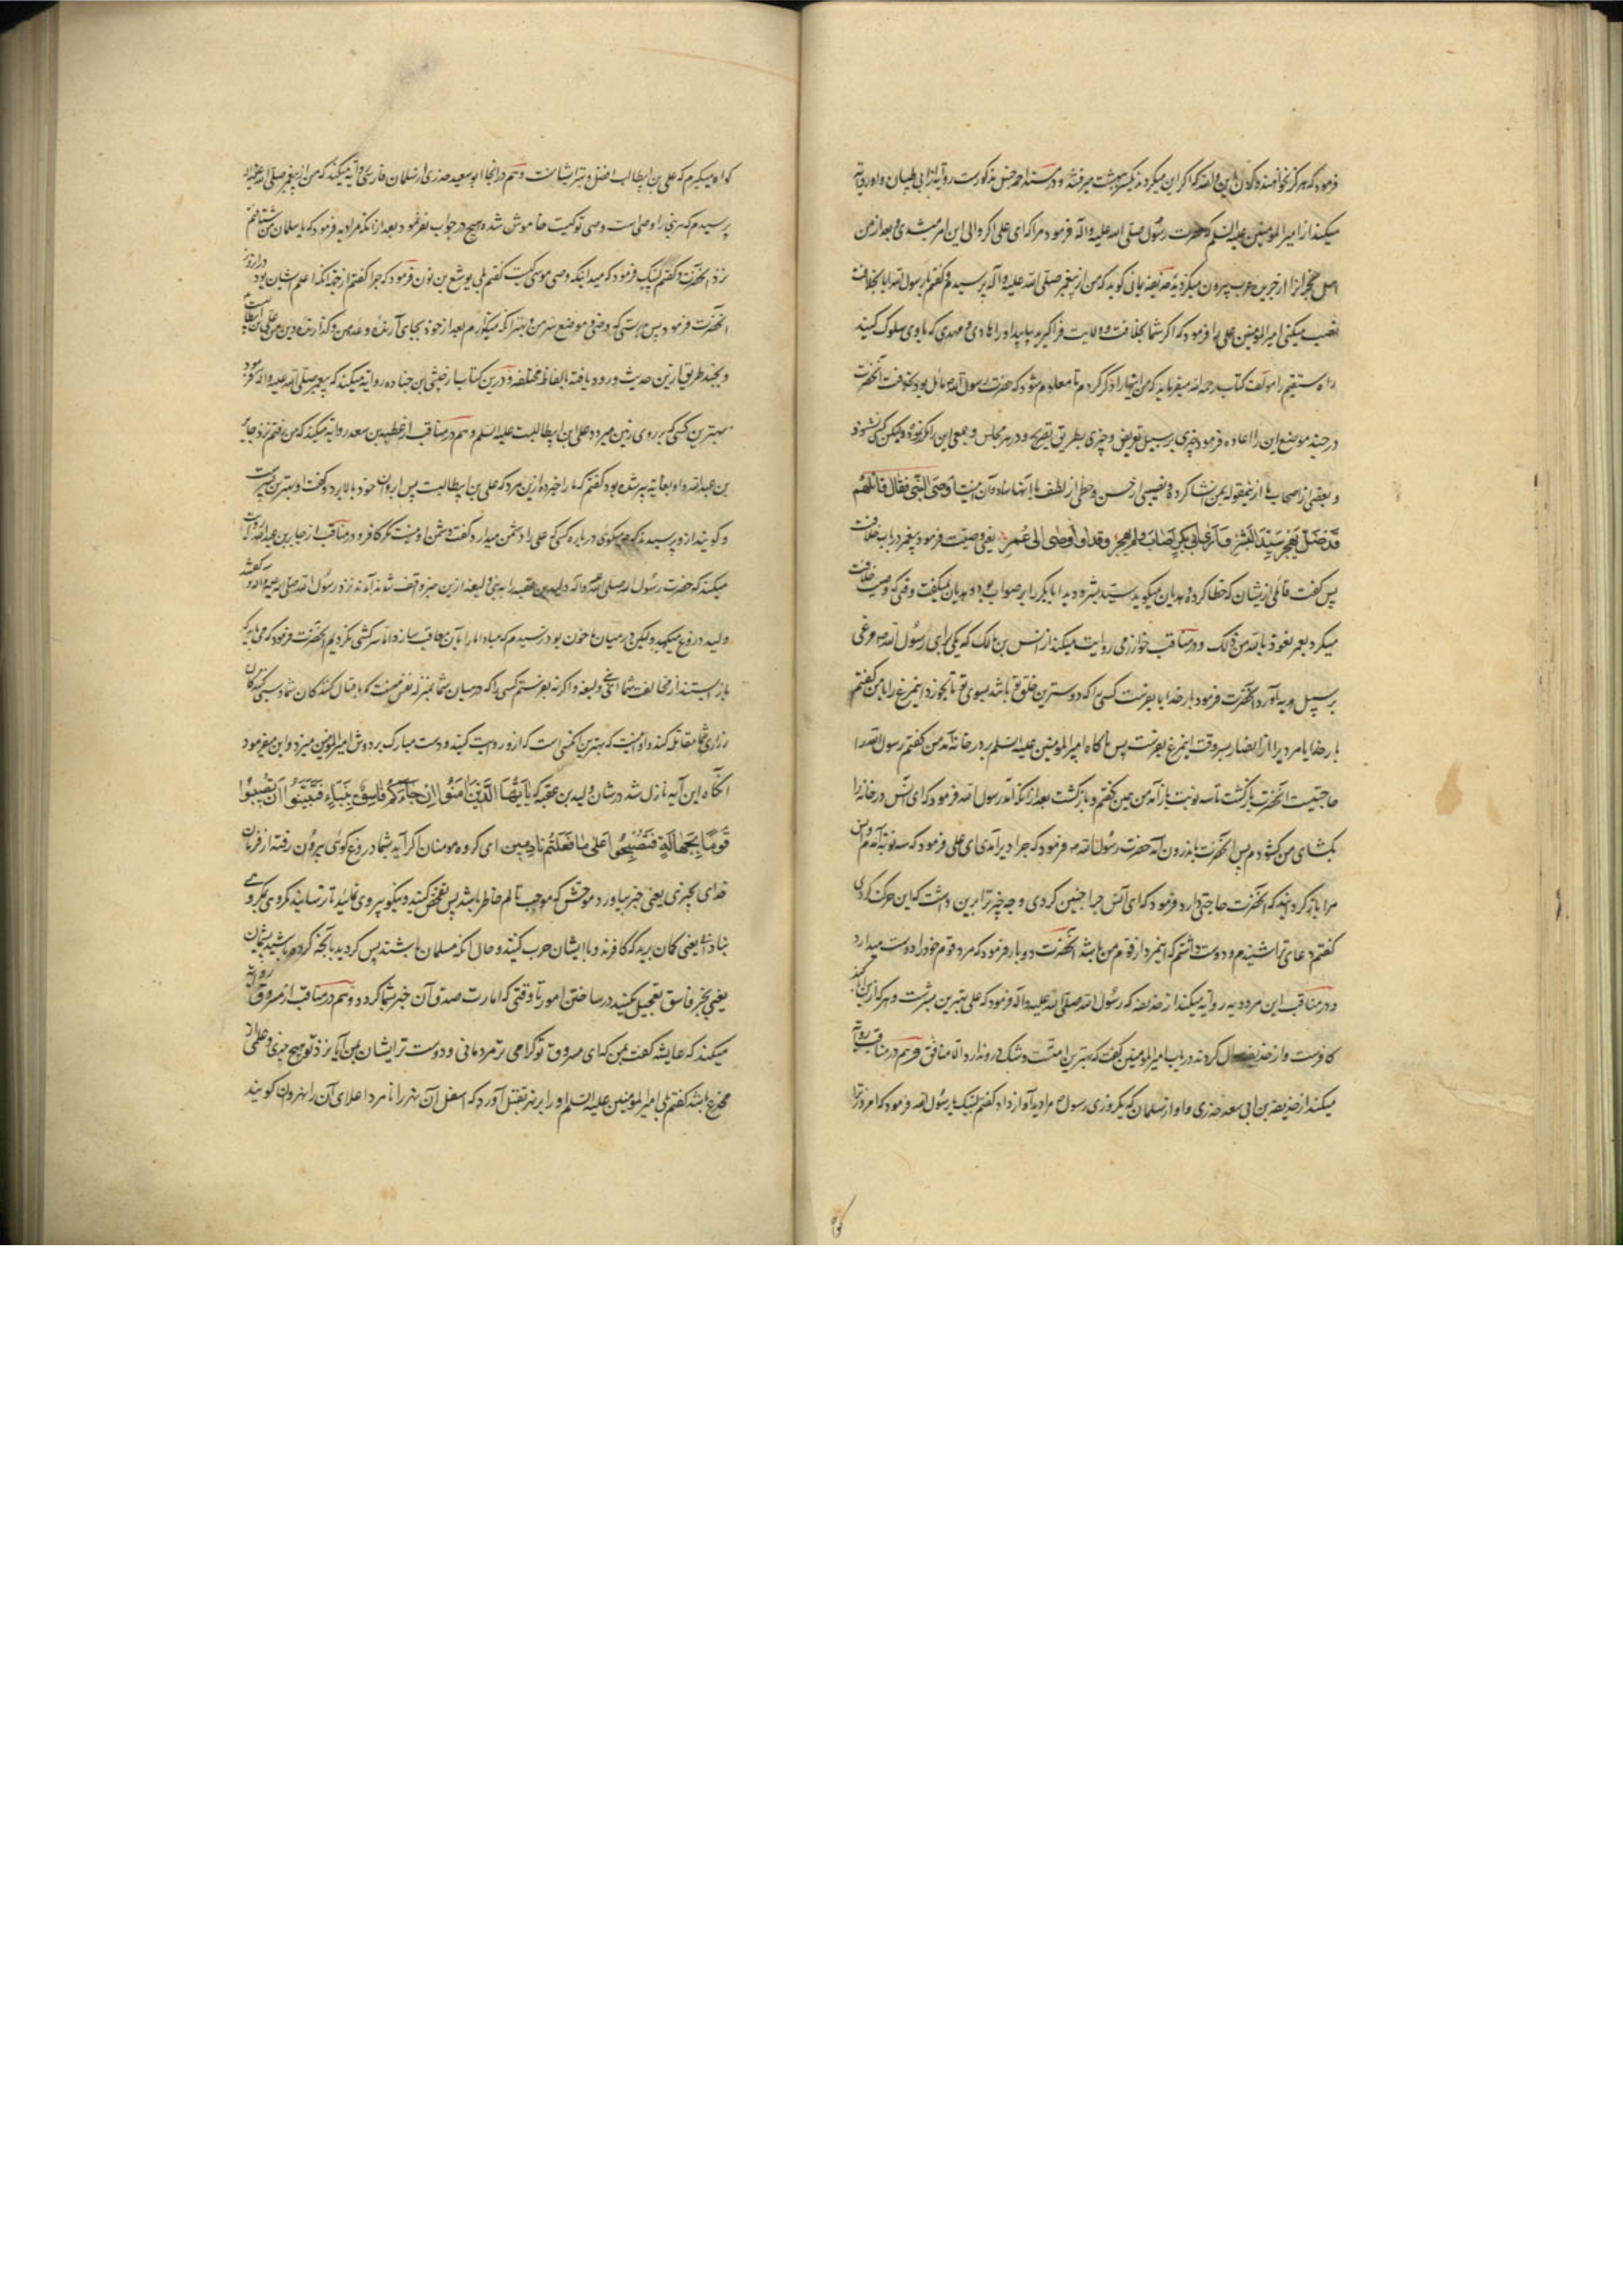 فرمود که هرگز نخواهند کردن این والله که اگر این میکردند بهشت میرفتند و در مسند احمد حنبل مذکورست
میکنند از امیر المؤمنین علیه السلم که حضرت رسول صلی الله علیه و آله فرمود مرا که ای علی اگر والی این امر شدی بعد از من
اهل نجران را از جزیره عرب بیرون میکن گوید که من از پیغمبر صلی الله علیه و آله پرسیدم و گفتم یا رسول الله آیا بخلافت
نصب میکنی امیر المؤمنین علی را فرمود که اگر شما بخلافت و ولایت فرا گیرید بیابید او را هادی و مهدی که با وی سلوک کنید
راه مستقیم را مؤلف کتاب رحمه الله میفرماید که من اینها را ذکر کردم تا معلوم شود که حضرت رسول الله مایل بود بخلافت آنحضرت
در چند موضع این را اعاده فرمود چیزی بر سبیل تعریض و چیزی بطریق تصریح و در هر مجالس و جمعی این را
و بعضی از اصحاب ما از آنها ساده آن اینست اوصی النبی فقال قائلهم
قد ضل یهجر سید البشر و اری ابی بکر اصاب ولم یهجر وقد اوصی الی عمر یعنی وصیت فرمود پیغمبر در باب خلافت
پس گفت قائلی ازیشان که خطا کرده هذیان میگوید سید بشر و دید ابا بکر را بر صواب و هذیان نمیگفت وقتی که وصیت خلافت
میکرد بعمر نعوذ بالله من ذلک و در مناقب خوارزمی روایت میکند از انس بن مالک که یکی برای رسول الله مرغی
بر سبیل هدیه آورد آنحضرت فرمود بار خدایا بفرست کسی را که دوسترین خلق تو باشد بسوی تو تا بخورد این مرغ را با من گفتم
بار خدایا مردی را از انصار بفرست پس ناگاه امیر المؤمنین علیه السلم بدر خانه آمد من گفتم رسول الله را
حاجتیست آنحضرت بازگشت تا سه نوبت باز آمد من همین گفتم و بازگشت بعد از آنکه آمد رسول الله فرمود که ای انس در خانه را
بگشای من گشودم پس آنحضرت اندرون آمد حضرت رسول الله فرمود که چرا دیر آمدی ای علی فرمود که سه نوبت آمدم و انس
مرا باز گردانید که آنحضرت حاجتی دارد فرمود که ای انس چرا چنین کردی و چه چیز ترا برین داشت که این حرکت کردی
گفتم دعای ترا شنیدم و دوست داشتم که این مرد از قوم من باشد آنحضرت دو بار فرمود که مرد قوم خود را دوست میدارد
و در مناقب ابن مردویه روایه میکند از حذیفه که رسول الله صلی الله علیه و آله فرمود که علی بهترین بشرست و هر که ازین ابا کند
کافرست و از حذیفه سؤال کردند در باب امیر المؤمنین گفت که بهترین امتست و شک درو ندارد الا منافق و هم در مناقب روایه
میکند از ابی سعید خدری و او از سلمان که یک روزی رسول مرا دید آواز داد گفتم لبیک یا رسول الله فرمود که امروز ترا
گواه
گواه میگیرم که علی بن ابیطالب افضل و بهتر ایشانست و هم در آنجا ابو سعید خدری از سلمان فارسی روایه میکند که من از پیغمبر صلی الله علیه
پرسیدم که هر نبی را وصی است وصی تو کیست خاموش شده هیچ در جواب نفرمود بعد از آنکه مرا دید فرمود که یا سلمان من شتافتم
نزد آنحضرت و گفتم لبیک فرمود که میدانی که وصی موسی کیست گفتم بلی یوشع بن نون فرمود که چرا گفتم از جهة آنکه اعلم ایشان بود
آنحضرت فرمود پس بدرستی که وصی و موضع سر من و بهتر آنکه میگذارم بعد از خود بجای آرنده وعده من و گذارنده دین من علی بن ابیطالب
و بچند طریق ازین حدیث ورود یافته بالفاظ مختلفه و درین کتاب از حبشی بن جناده روایه میکند که پیغمبر صلی الله علیه و اله فرمود
بهترین کسی که بر روی زمین میرود علی ابن ابیطالبست علیه السلم و هم در مناقب از عطیه بن سعد روایه میکند که من رفتم نزد جابر
بن عبدالله و او بغایه پیر شده بود گفتم که ما را خبر ده ازین مرد که علی بن ابیطالبست پس ابروان خود بالا برد و گفت او بهترین بشرست
و گویند ازو پرسیدند که چه میگوی در باره کسی که علی را دشمن میدارد گفت دشمن او نیست مگر کافر و در مناقب از جابر بن عبدالله روایت
میکند که حضرت رسول الله صلی الله علیه و اله ولید بن عقبه را به بنی ولیعه آمدند نزد رسول الله صلی الله علیه و اله و گفتند
ولید دروغ میگوید ولیکن در میان ما خون بود ترسیدیم که مبادا ما را آنحضرت فرمود که می باید که
باز ایستند از مخالفت شما ای بنی ولیعه و اگر نه بفرستم کسی را که در میان شما بمنزله نفس منست که با قتال کنندگان شما و سبی کند
زراری شما مقاتله کند و او اینست که بهترین کسی است که ازو روایت کنید و دست مبارک بر دوش امیر المؤمنین میزد و این میفرمود
آنگاه این آیه نازل شد در شان ولید بن عقبه که یا ایها الذین آمنوا ان جاءکم فاسق بنباء فتبینوا ان تصیبوا
قوما بجهالة فتصبحوا علی ما فعلتم نادمین ای گروه مومنان اگر آید بشما دروغ گوی بیرون رفته از فرمان
خدای بچیزی یعنی خبر بیاورد موحش که موجب تالم خاطر باشد پس تفحص کنید و نیکو پیروی نمائید تا نرسانید مکروهی بگروهی
بنادانی یعنی گمان برید که کافرند و با ایشان حرب کنید و حال آنکه مسلمان باشند پس گردید بآنچه کرده باشید پشیمان
یعنی بخبر فاسق تعجیل مکنید در ساختن امور تا وقتی که امارت صدق آن خبر شما گردد و هم در مناقب از مسروق روایه
میکند که عایشه گفت بمن که ای مسروق تو گرامی تر مردمانی و دوست تر ایشان بمن آیا نزد تو هیچ چیزی و علمی از
مخدج باشد گفتم بلی امیر المؤمنین علیه السلم او را بر نهر بقتل آورد که اسفل آن نهر را تامرا و اعلای آن را نهروان گویند